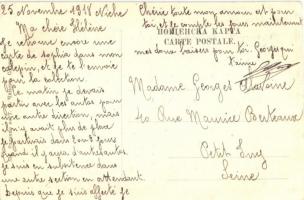 25 Novembre 1918 Niche
Ma chère Hélène
Je retrouve encore une
carte de Sophia dans mon
et je te l'envoie
pour ta collection.
Ce matin je devais
partir avec les autos pour
une autre direction, mais
il n'y avait plus de place
je partirais dans 2 ou 3 jours
quand il y aura d'autres autos
je suis en subsistance dans
une autre section en attendant.
Depuis que je suis affecté je
Chérie toute mon amour est pour
toi, et je compte les jours maintenant
mes doux baisers pour toi. Georges qui
t'aime
ПОЩЕНСКА КАРТА
CARTE POSTALE.
Madame Georges
40 Rue Maurice Berteaux
Petit Ivry
Seine